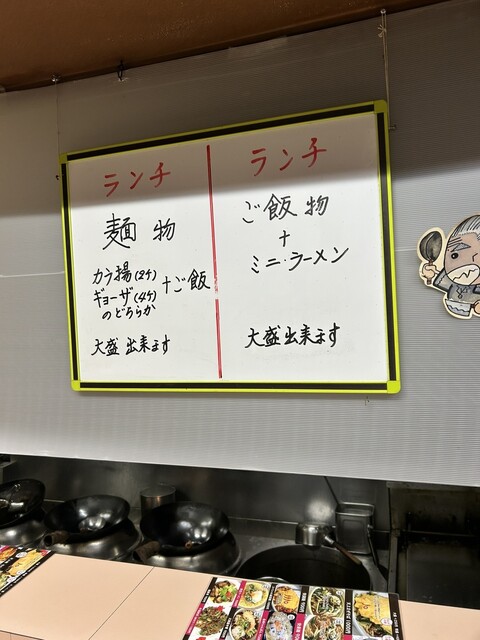 ランチ
麺物
カラ揚(2ケ)
ギョーザ(4ケ)
のどちらか
+ご飯
大盛出来ます
ランチ
ご飯物
+
ミニ・ラーメン
大盛出来ます